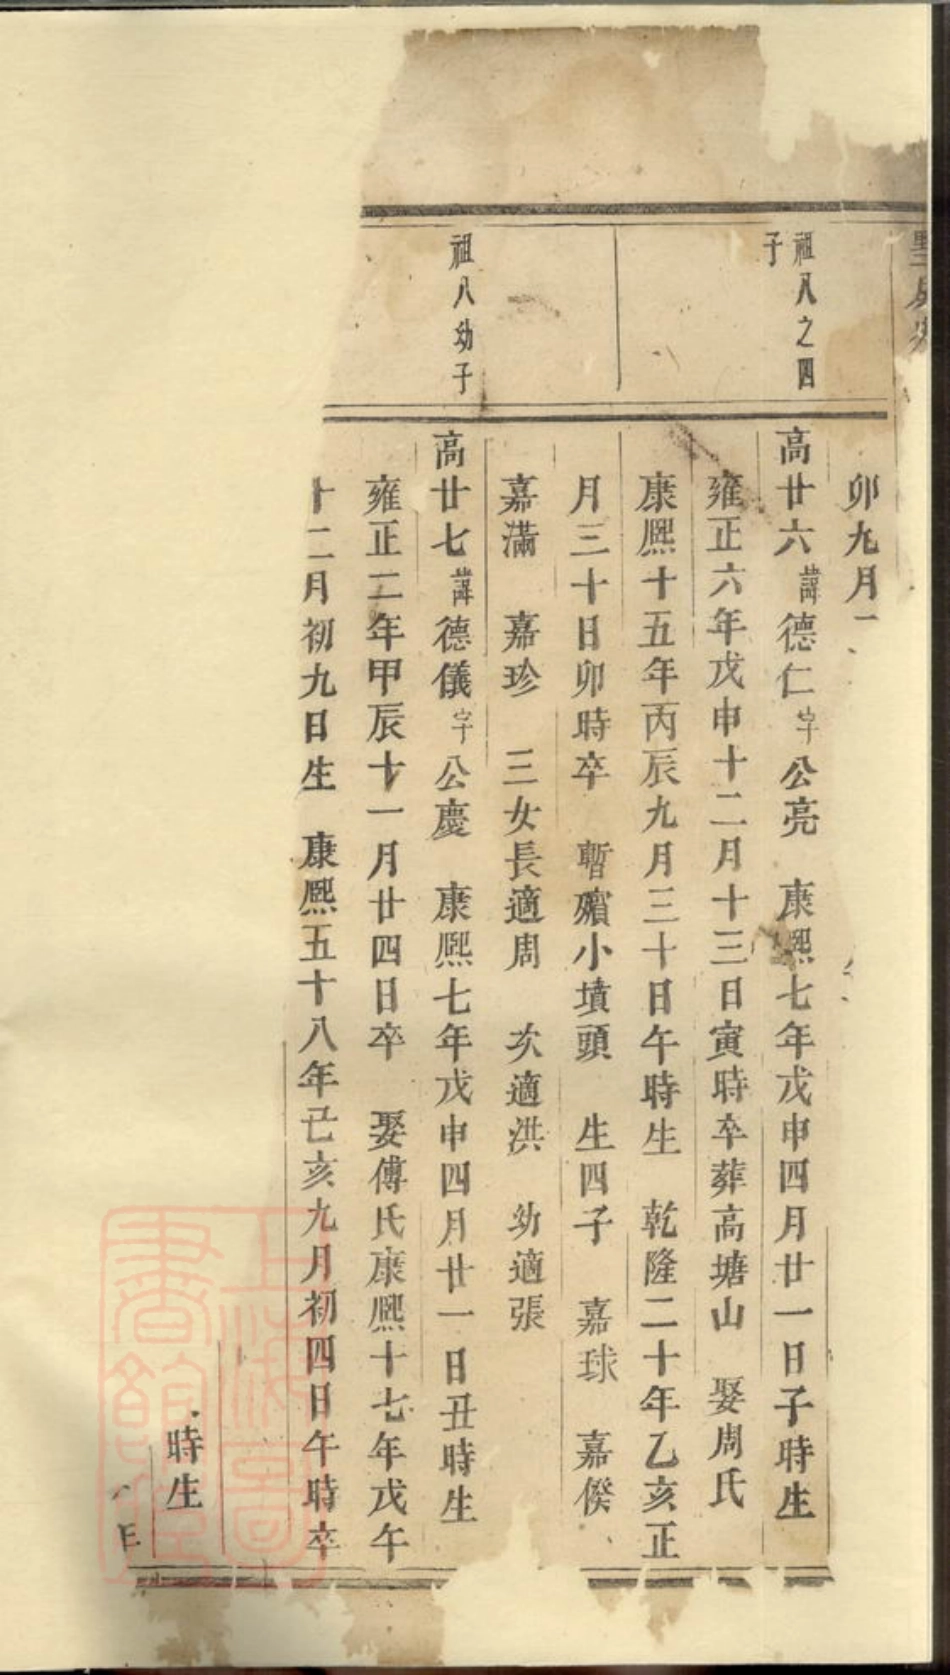 卯九月
祖八之四
子
高廿六諱德仁字公亮　康熙七年戊申四月廿一日子時生
雍正六年戊申十二月十三日寅時卒葬高塘山　娶周氏
康熙十五年丙辰九月三十日午時生　乾隆二十年乙亥正
月三十日卯時卒　暫殯小墳頭　生四子　嘉球　嘉
嘉滿　嘉珍　三女長適周　次適洪　幼適張
祖八幼子
高廿七諱德儀字公慶　康熙七年戊申四月廿一日丑時生
雍正二年甲辰十一月廿四日卒　娶傅氏康熙十七年戊午
十二月初九日生　康熙五十八年己亥九月初四日午時卒
時生
上海圖
書館藏